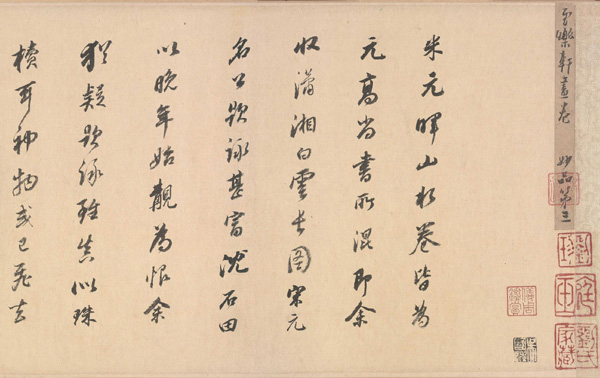 至樂軒畫卷 妙品第三
米元暉山水卷皆為
元高尚書所混即余
收瀟湘白雲長圖宋元
名公題詠甚富沈石田
以晚年始覯為恨余
猶疑題詠雖真似珠
櫝耳神物或已飛去
劉氏家藏